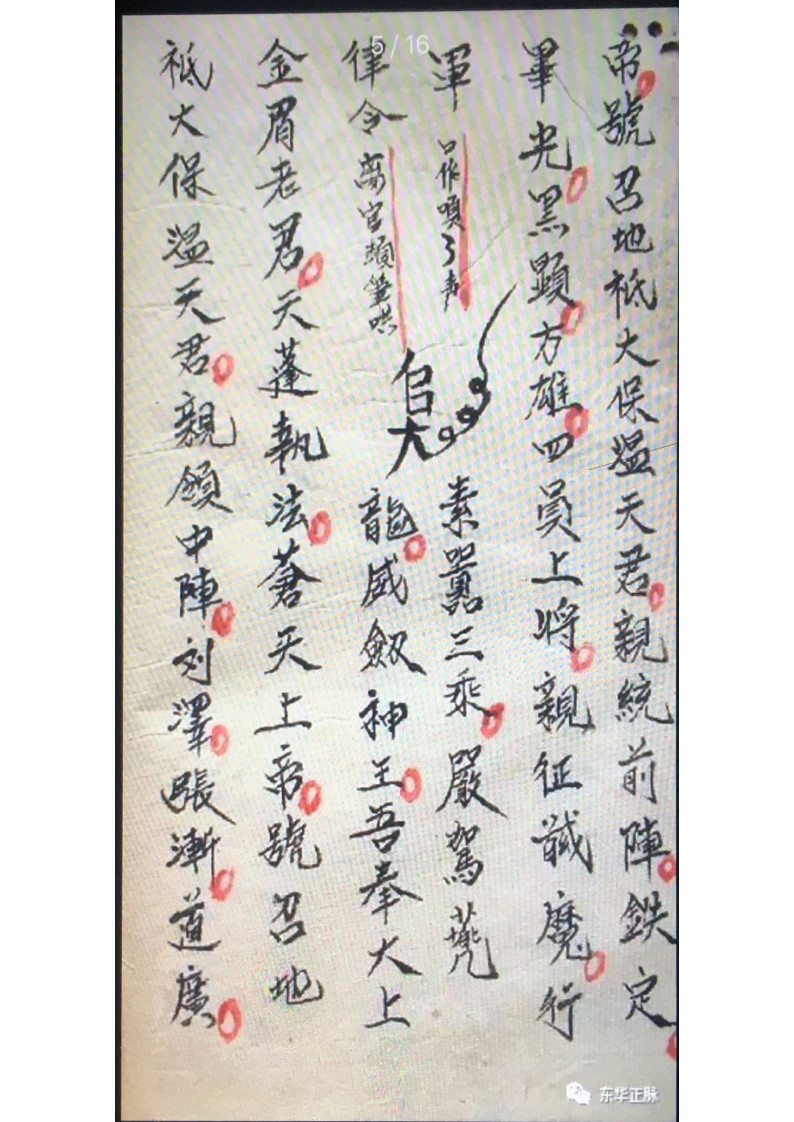 5/16
帝號召地祇大保溫天君親統前陣鉄定
畢光黑顕方雄四員上将親征馘魔行
軍
口作嗅了声
素囂三乘嚴駕
律令
龍威劔神王吾奉大上
金眉老君天蓬執法蒼天上帝號召地
祇大保溫天君親領中陣刘澤張漸道廣
东华正脉